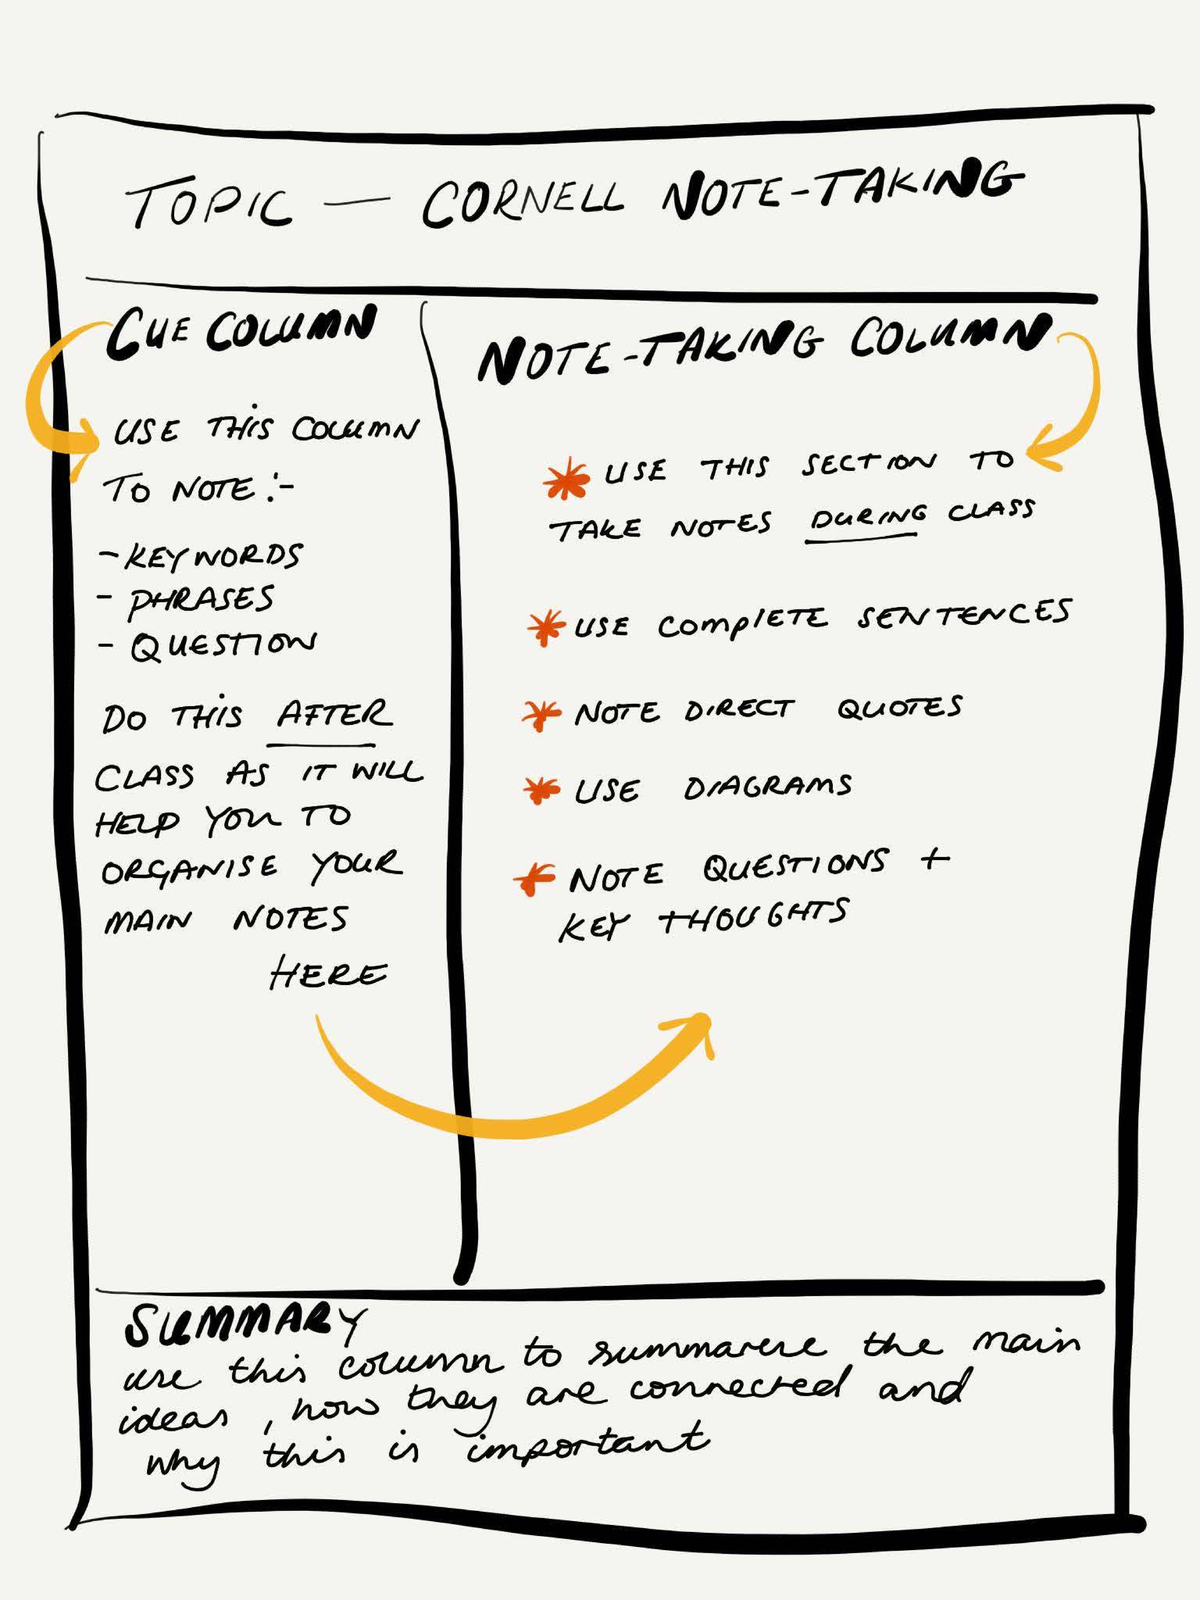 TOPIC — CORNELL NOTE-TAKING
CUE COLUMN
USE THIS COLUMN
TO NOTE:-
- KEYWORDS
- PHRASES
- QUESTION
DO THIS AFTER
CLASS AS IT WILL
HELP YOU TO
ORGANISE YOUR
MAIN NOTES
HERE
NOTE-TAKING COLUMN
* USE THIS SECTION TO
TAKE NOTES DURING CLASS
* USE COMPLETE SENTENCES
* NOTE DIRECT QUOTES
* USE DIAGRAMS
* NOTE QUESTIONS +
KEY THOUGHTS
SUMMARY
use this column to summarise the main
ideas, how they are connected and
why this is important